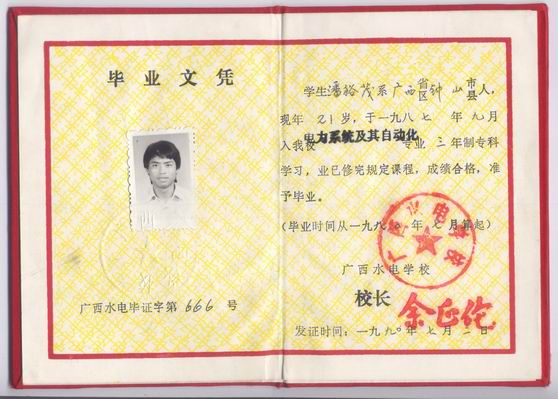 毕业文凭
广西水电毕证字第 666 号
学生潘裕茂系广西省区钟山市县人,
现年21岁,于一九八七年九月
入我校电力系统及其自动化专业三年制专科
学习,业已修完规定课程,成绩合格,准
予毕业。
(毕业时间从一九九〇年七月算起)
广西水电学校
广西水电学校
校长 余正佗
发证时间:一九九〇年七月二日